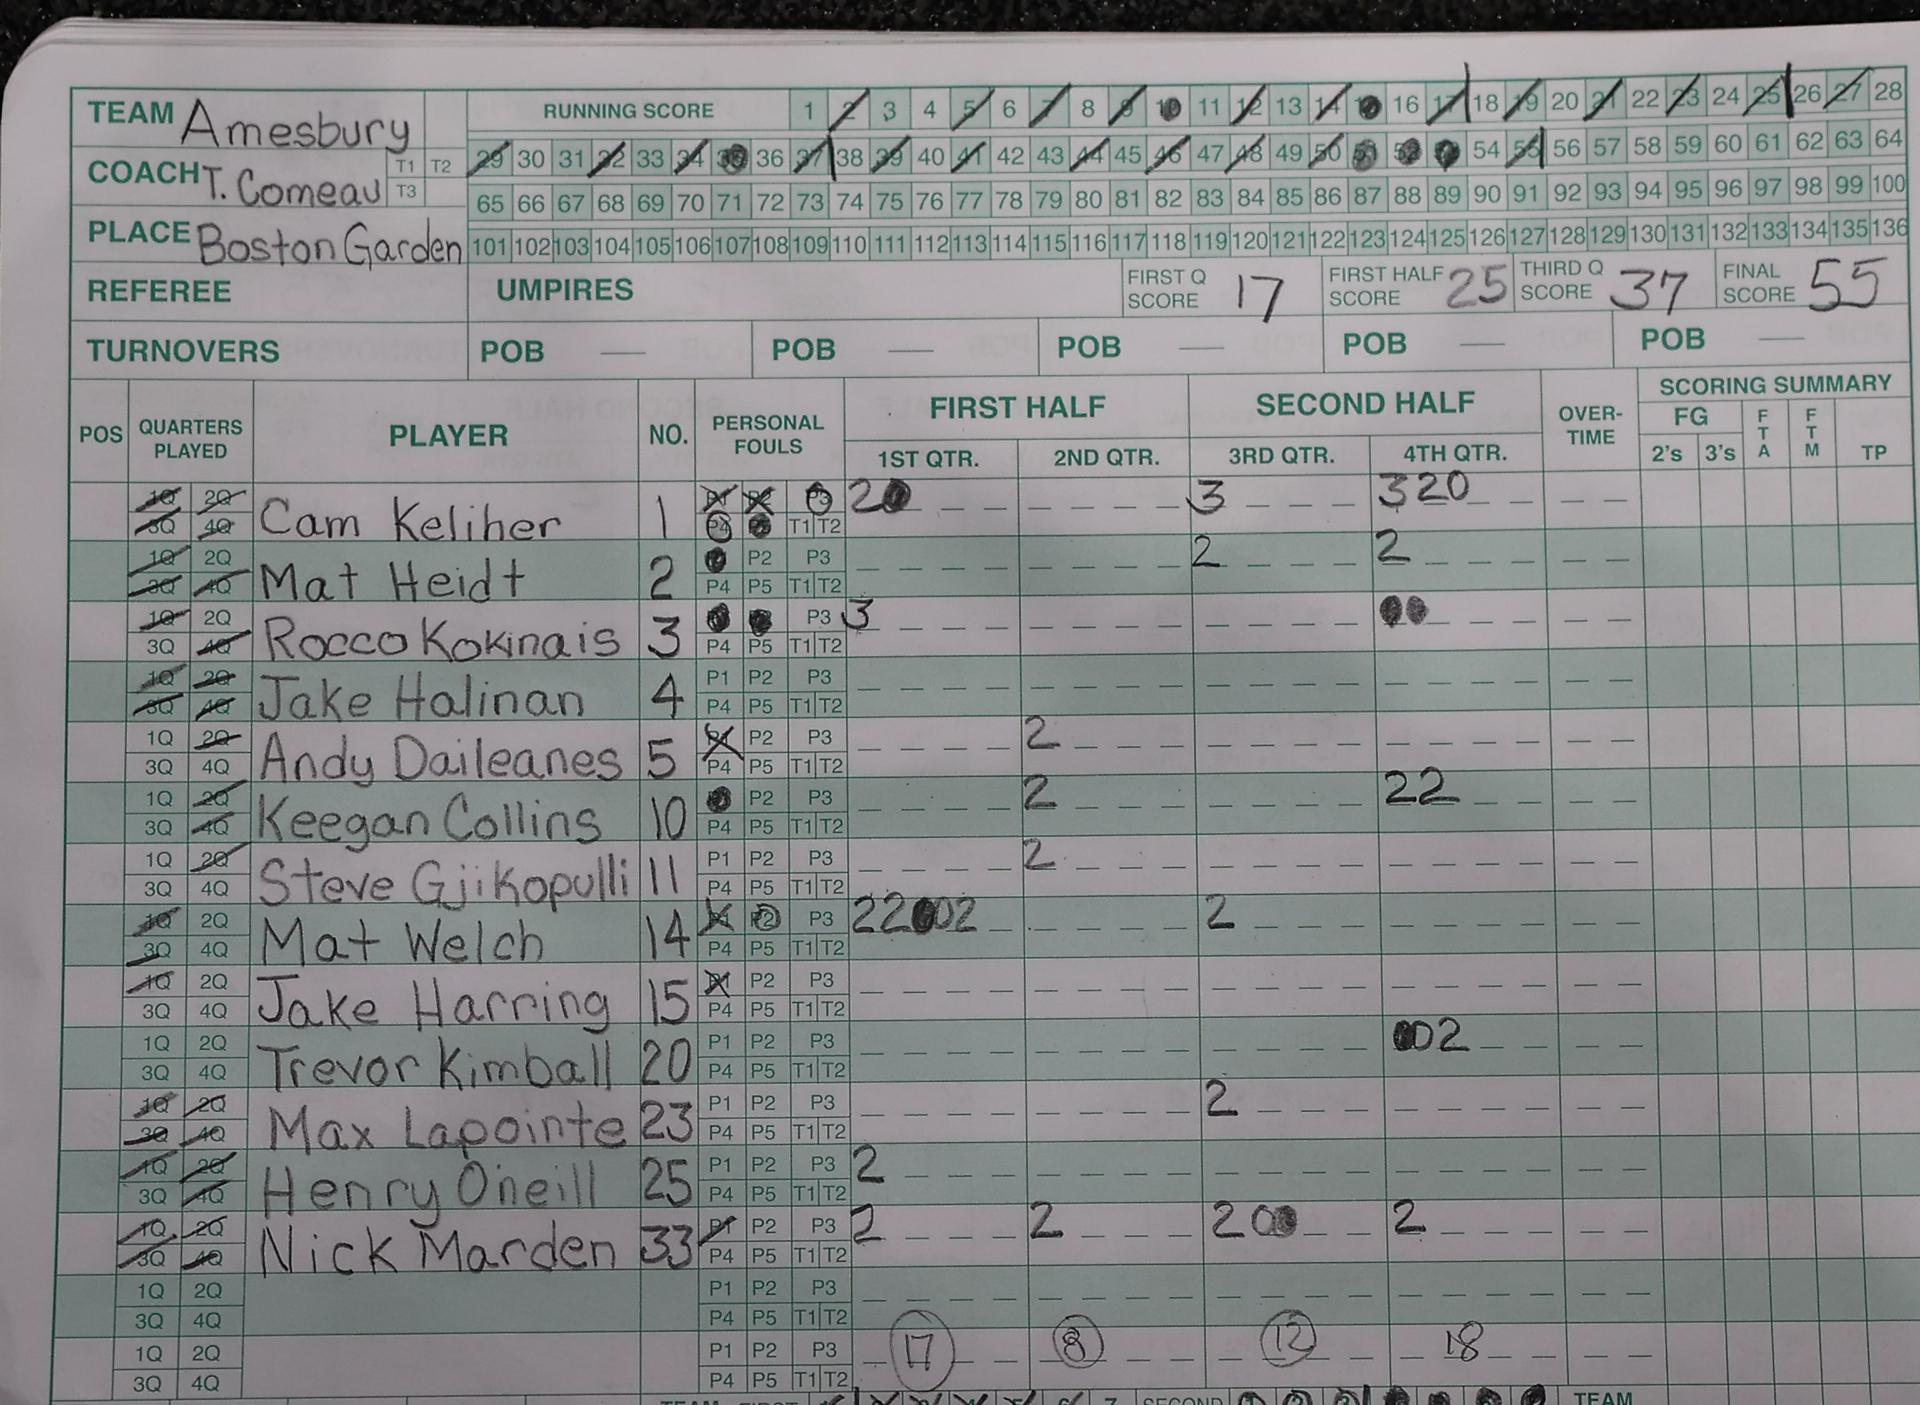 TEAM Amesbury RUNNING SCORE 1 2 3 4 5 6 7 8 9 10 11 12 13 14 15 16 17 18 19 20 21 22 23 24 25 26 27 28
COACH T. Comeau T1 T2 T3 29 30 31 32 33 34 35 36 37 38 39 40 41 42 43 44 45 46 47 48 49 50 51 52 53 54 55 56 57 58 59 60 61 62 63 64
65 66 67 68 69 70 71 72 73 74 75 76 77 78 79 80 81 82 83 84 85 86 87 88 89 90 91 92 93 94 95 96 97 98 99 100
PLACE Boston Garden 101 102 103 104 105 106 107 108 109 110 111 112 113 114 115 116 117 118 119 120 121 122 123 124 125 126 127 128 129 130 131 132 133 134 135 136
REFEREE UMPIRES FIRST Q SCORE 17 FIRST HALF SCORE 25 THIRD Q SCORE 37 FINAL SCORE 55
TURNOVERS POB — POB — POB — POB — POB —
POS QUARTERS PLAYED PLAYER NO. PERSONAL FOULS FIRST HALF SECOND HALF OVER-TIME SCORING SUMMARY
1ST QTR. 2ND QTR. 3RD QTR. 4TH QTR. FG 2's 3's FTA FTM TP
1Q 2Q 3Q 4Q Cam Keliher 1 P1 P2 P3 P4 P5 T1 T2 2 3 320
1Q 2Q 3Q 4Q Mat Heidt 2 P1 P2 P3 P4 P5 T1 T2 2 2
1Q 2Q 3Q 4Q Rocco Kokinais 3 P3 P4 P5 T1 T2 3
1Q 2Q 3Q 4Q Jake Halinan 4 P1 P2 P3 P4 P5 T1 T2
1Q 2Q 3Q 4Q Andy Daileanes 5 P1 P2 P3 P4 P5 T1 T2 2
1Q 2Q 3Q 4Q Keegan Collins 10 P2 P3 P4 P5 T1 T2 2 22
1Q 2Q 3Q 4Q Steve Gjikopulli 11 P1 P2 P3 P4 P5 T1 T2 2
1Q 2Q 3Q 4Q Mat Welch 14 P1 P2 P3 P4 P5 T1 T2 22 02 2
1Q 2Q 3Q 4Q Jake Harring 15 P1 P2 P3 P4 P5 T1 T2
1Q 2Q 3Q 4Q Trevor Kimball 20 P1 P2 P3 P4 P5 T1 T2 02
1Q 2Q 3Q 4Q Max Lapointe 23 P1 P2 P3 P4 P5 T1 T2 2
1Q 2Q 3Q 4Q Henry Oneill 25 P1 P2 P3 P4 P5 T1 T2 2
1Q 2Q 3Q 4Q Nick Marden 33 P1 P2 P3 P4 P5 T1 T2 2 2 20 2
1Q 2Q 3Q 4Q P1 P2 P3 P4 P5 T1 T2
1Q 2Q 3Q 4Q P1 P2 P3 P4 P5 T1 T2 17 8 12 18
TEAM FIRST 7 SECOND TEAM